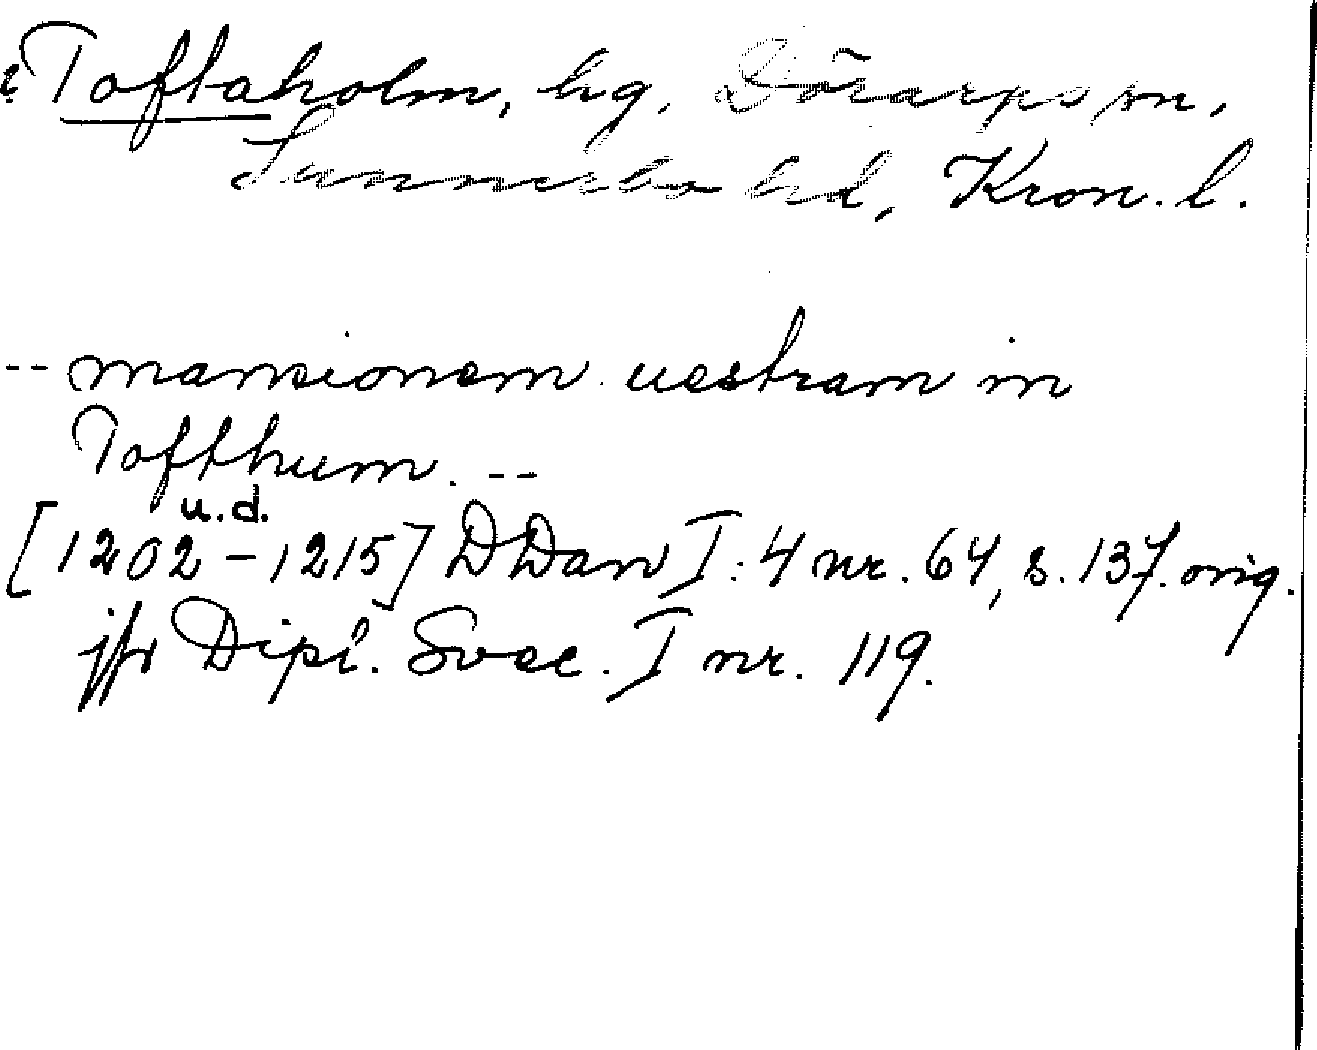 ? Toftaholm, hg, Dörarps sn,
Sunnerbo hd, Kron. l.
-- mansionem uestram in
Tofthum. --
u.d.
[1202-1215] DDan I:4 nr. 64, s. 137. orig.
jfr Dipl. Svec. I nr. 119.